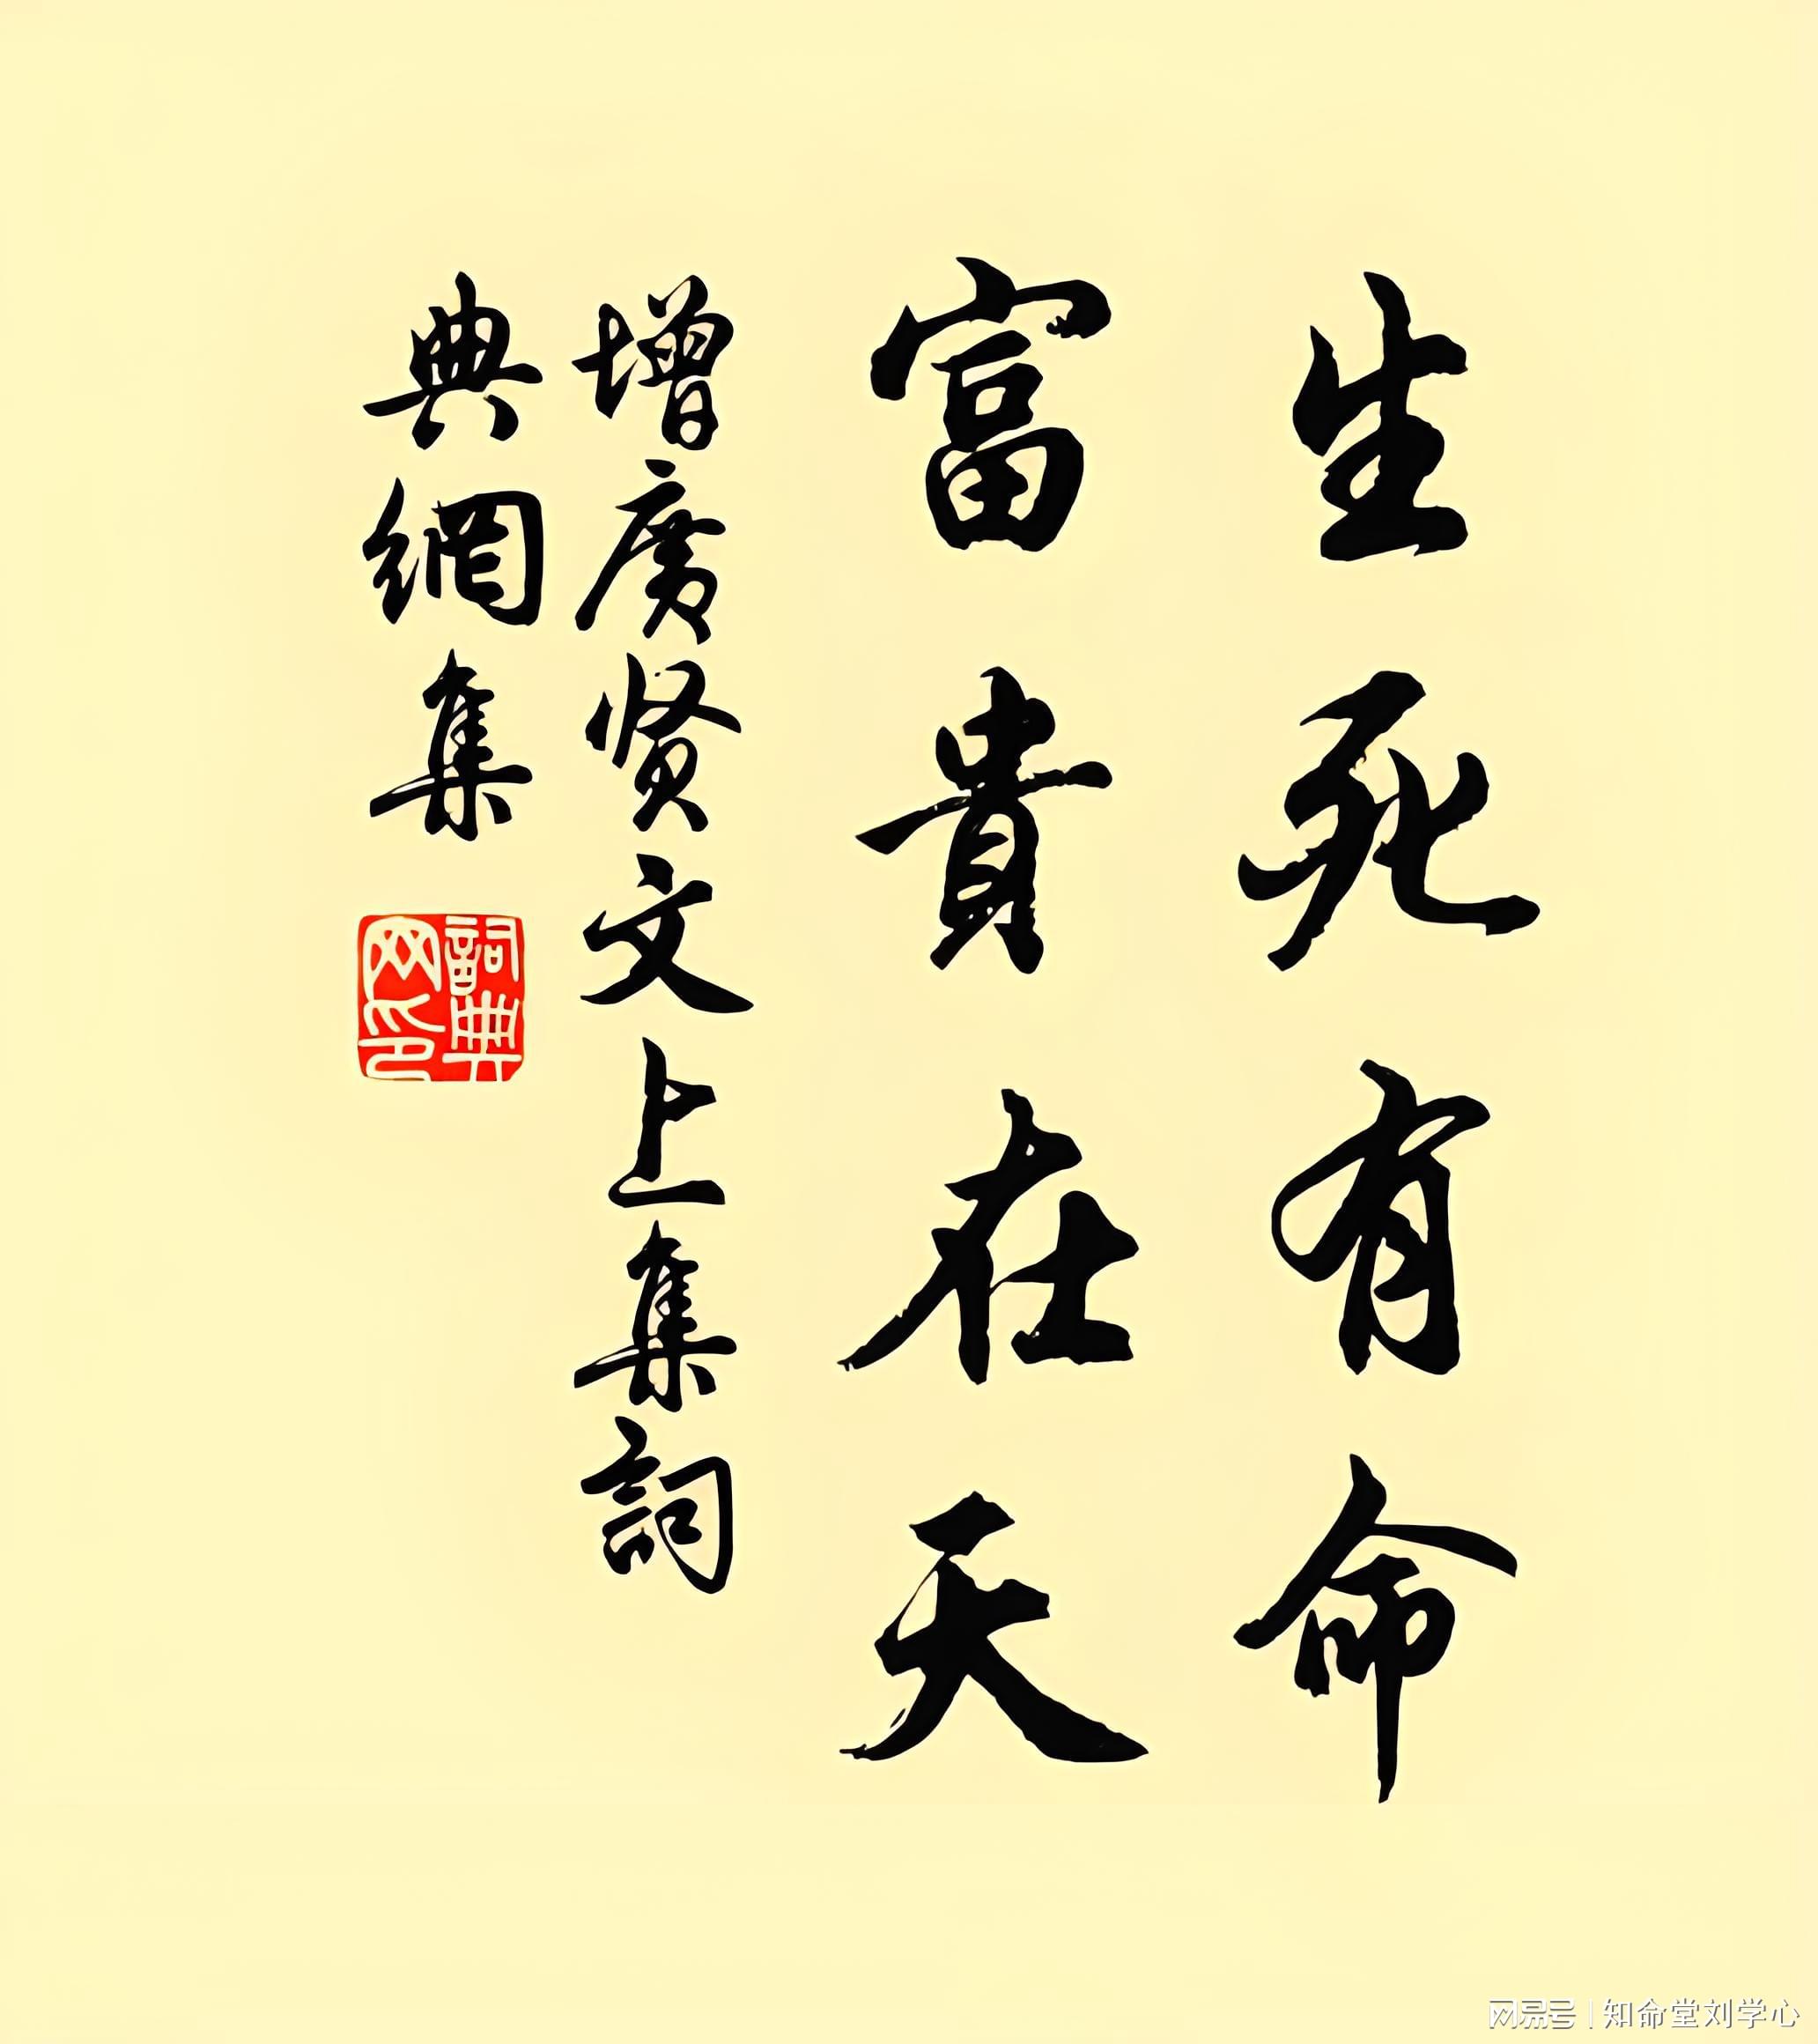 生死有命
富貴在天
增廣贤文上集詞
典網集
詞典网印
网易号 | 知命堂刘学心